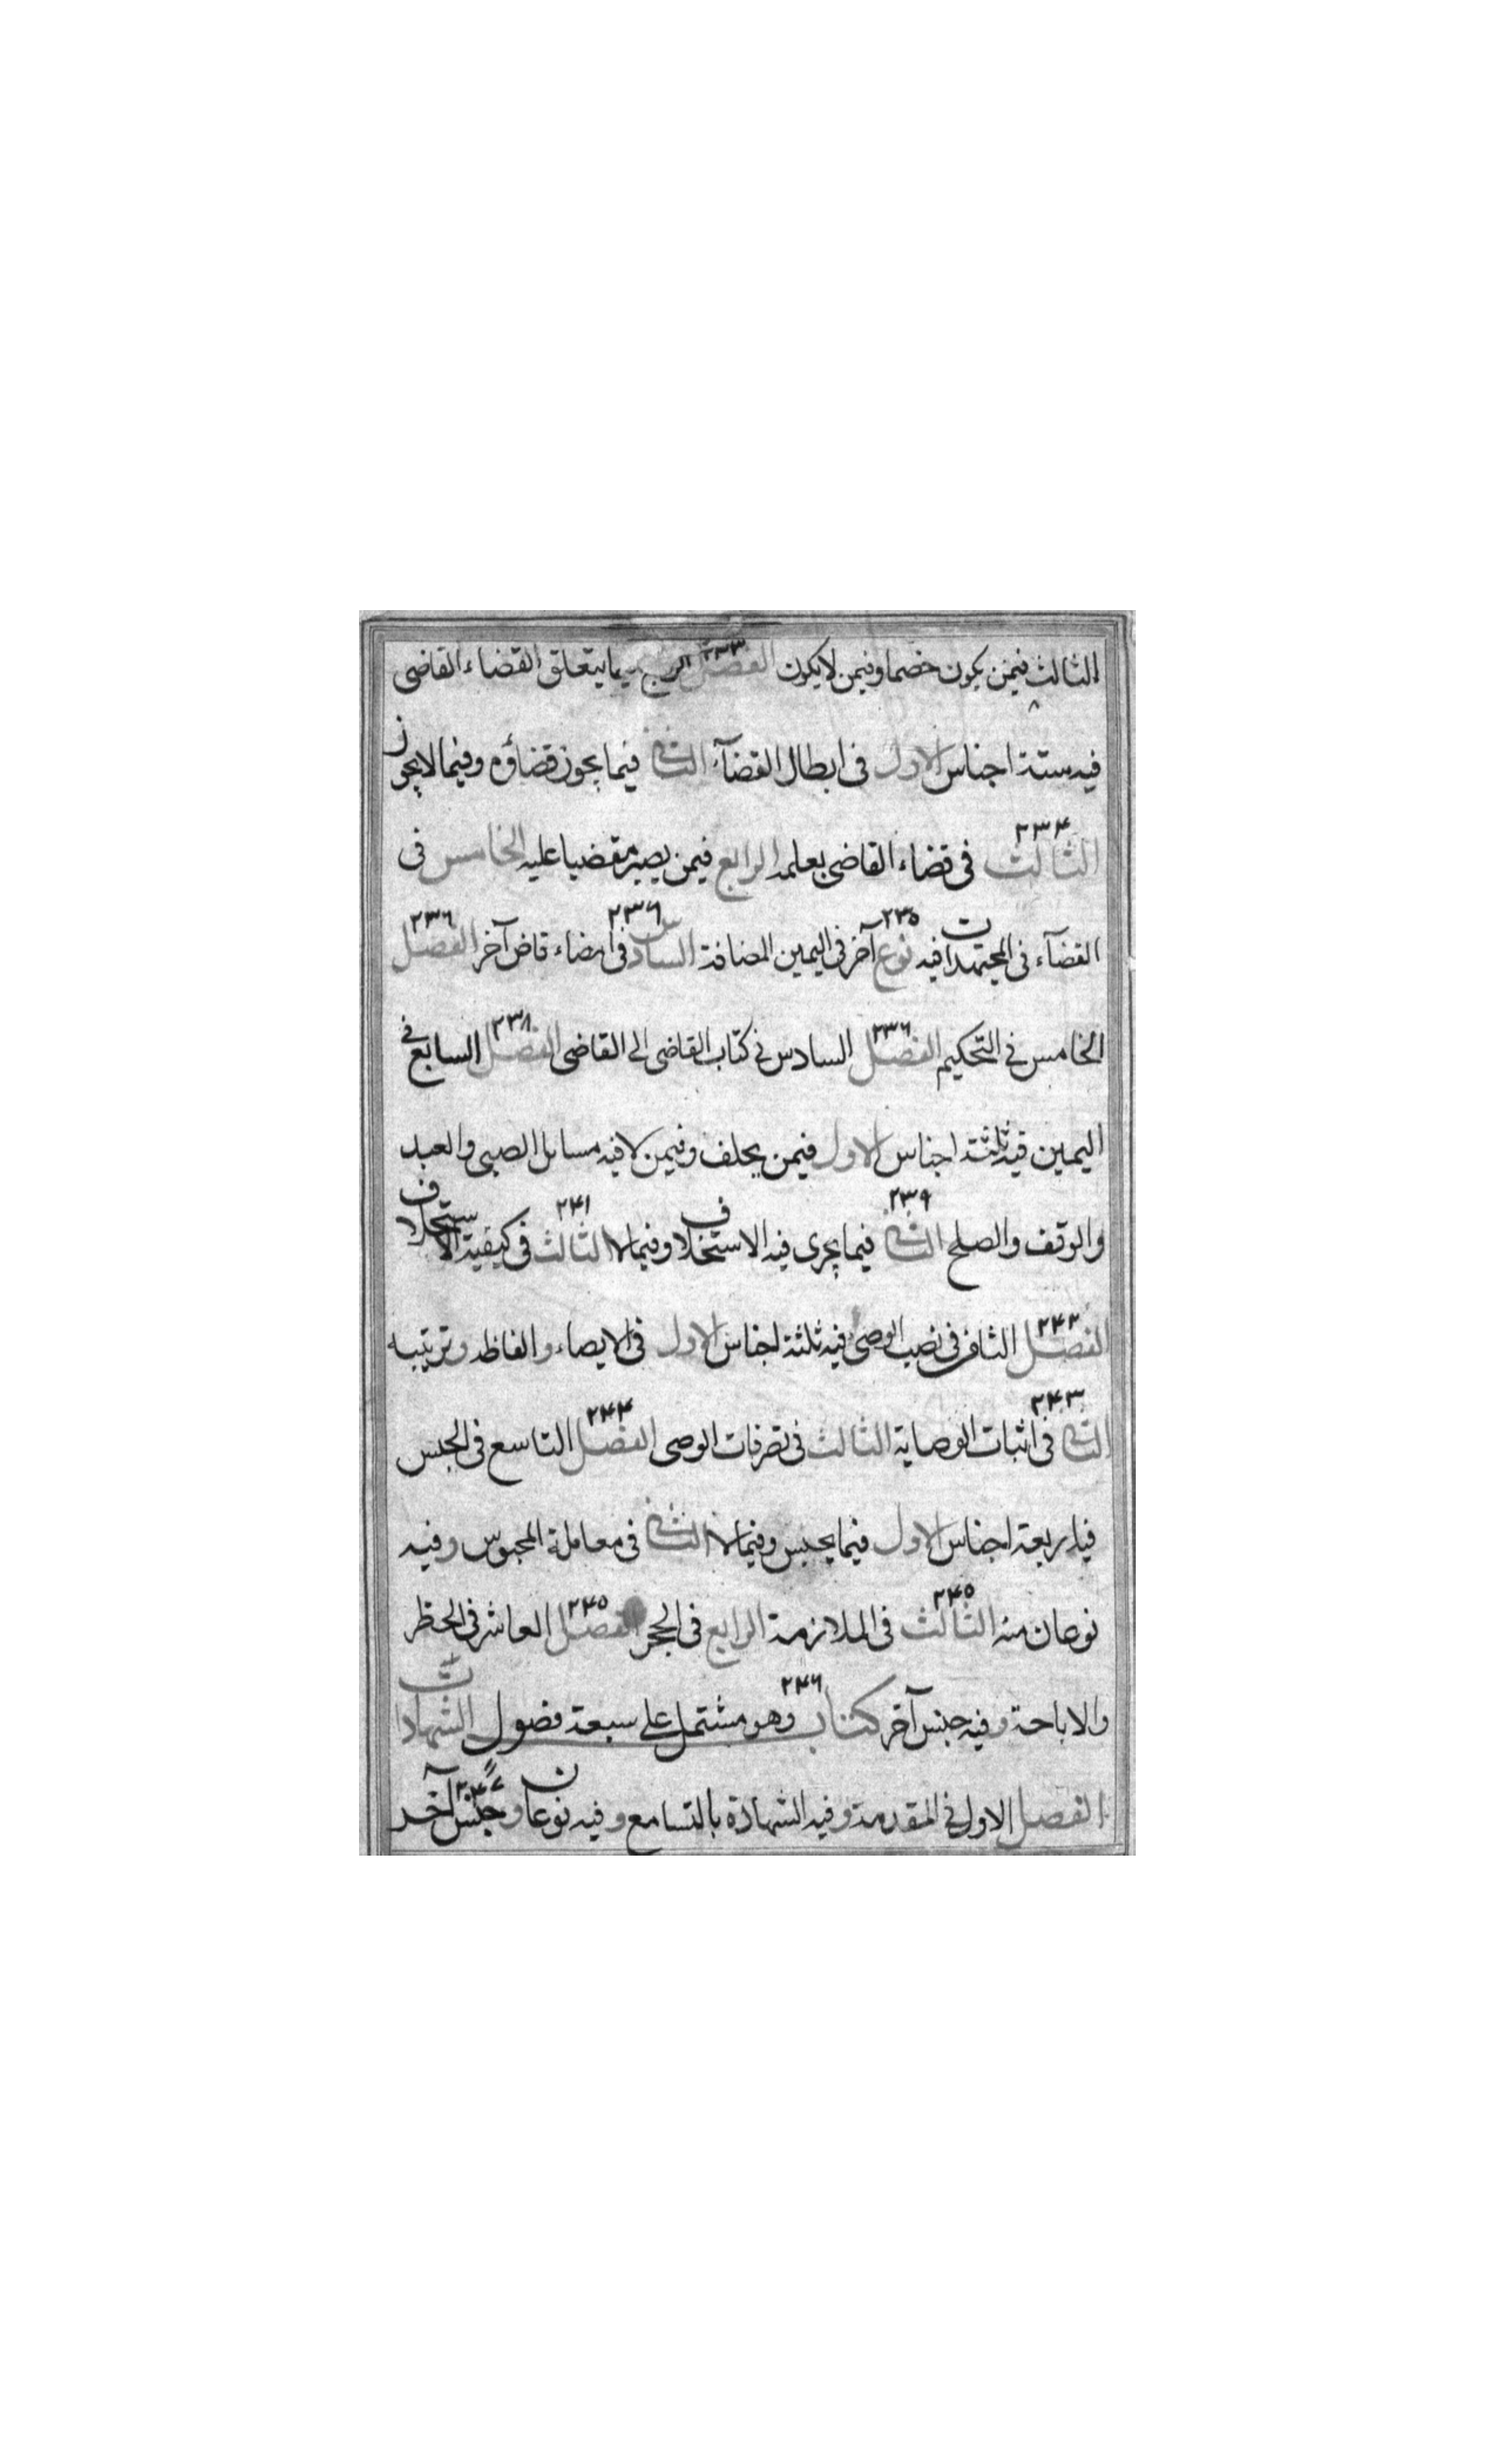 الثالث فيمن يكون خصما وفيمن لا يكون الفصل ٢٣٣ الرابع فيما يتعلق القضاء القاضى
فيه ستة اجناس الاول فى ابطال القضآء الثانى فيما يجوز قضاؤه وفيما لا يجوز
الثالث ٢٣۴ فى قضاء القاضى بعلمه الرابع فيمن يصير مقضيا عليه الخامس فى
القضآء فى المجتهدات فيه نوع ٢٣٥ آخر فى اليمين المضافة السادس ٢٣٦ فى امضاء قاض آخر الفصل ٢٣٦
الخامس فى التحكيم الفصل ٢٣٦ السادس فى كتاب القاضى الى القاضى الفصل ٢٣٨ السابع فى
اليمين فيه ثلثة اجناس الاول فيمن يحلف وفيمن لا فيه مسائل الصبى والعبد
والوقف والصلح الثانى ٢٣٩ فيما يجرى فيه الاستحلاف وفيما لا الثالث ٢۴١ فى كيفية الاستحلاف
الفصل ٢۴٢ الثامن فى نصب الوصى فيه ثلثة اجناس الاول فى الايصاء والفاظه وترتيبه
الثانى ٢۴٣ فى اثبات الوصاية الثالث فى تصرفات الوصى الفصل ٢۴۴ التاسع فى الحبس
فيه اربعة اجناس الاول فيما يحبس وفيما لا الثانى فى معاملة المحبوس وفيه
نوعان منه الثالث ٢۴٥ فى الملازمة الرابع فى الحجر الفصل ٢۴٥ العاشر فى الحظر
والاباحة وفيه جنس آخر كتاب ٢۴٦ وهو مشتمل على سبعة فصول الشهادات
الفصل الاول فى المقدمة وفيه الشهادة بالتسامع وفيه نوعان وجنس ٢۴٧ آخر